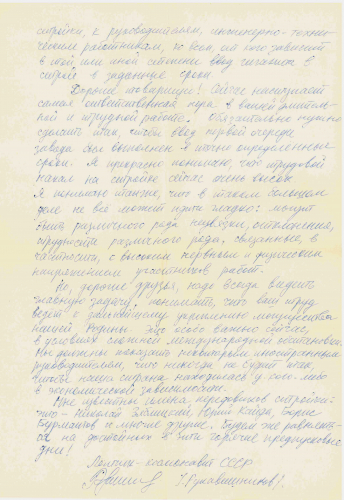 стройки, к руководителям, инженерно-техни-
ческим работникам, ко всем, от кого зависит
в той или иной степени ввод гиганта в
строй в заданные сроки.
Дорогие товарищи! Сейчас наступает
самая ответственная пора в вашей длитель-
ной и трудной работе. Обязательно нужно
сделать так, чтобы ввод первой очереди
завода был выполнен в точно определенные
сроки. Я прекрасно понимаю, что трудовой
накал на стройке сейчас очень высок.
Я понимаю также, что в таком большом
деле не всё может идти гладко: могут
быть различного рода неувязки, осложнения,
трудности различного рода, связанные, в
частности, с высоким нервным и физическим
напряжением участников работ.
Но, дорогие друзья, надо всегда видеть
главную задачу: понимать, что ваш труд
ведет к дальнейшему укреплению могущества
нашей Родины. Это особо важно сейчас,
в условиях сложной международной обстановки.
Мы должны показать некоторым иностранным
руководителям, что никогда не будет так,
чтобы наша страна находилась у кого-либо
в экономической зависимости.
Мне известны имена передовиков стройки:
это - Николай Юрий Борис
и многие другие. Будем же равнять-
ся на достойных в эти горячие предпусковые
дни!
Летчик-космонавт СССР
Н. Рукавишников